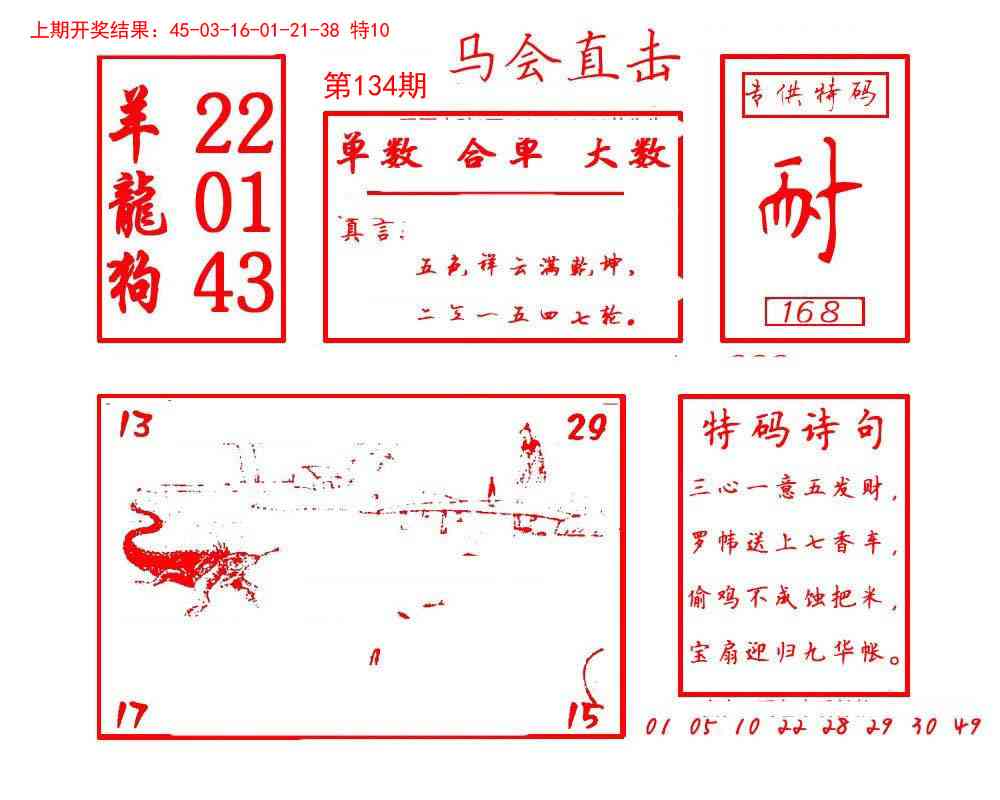 上期开奖结果：45-03-16-01-21-38 特10
马会直击
第134期
羊 22
龍 01
狗 43
单数 合单 大数
真言：
五色祥云满乾坤，
二三一五四七轮。
专供特码
耐
168
13
29
17
15
特码诗句
三心一意五发财，
罗帏送上七香车，
偷鸡不成蚀把米，
宝扇迎归九华帐。
01 05 10 22 28 29 30 49